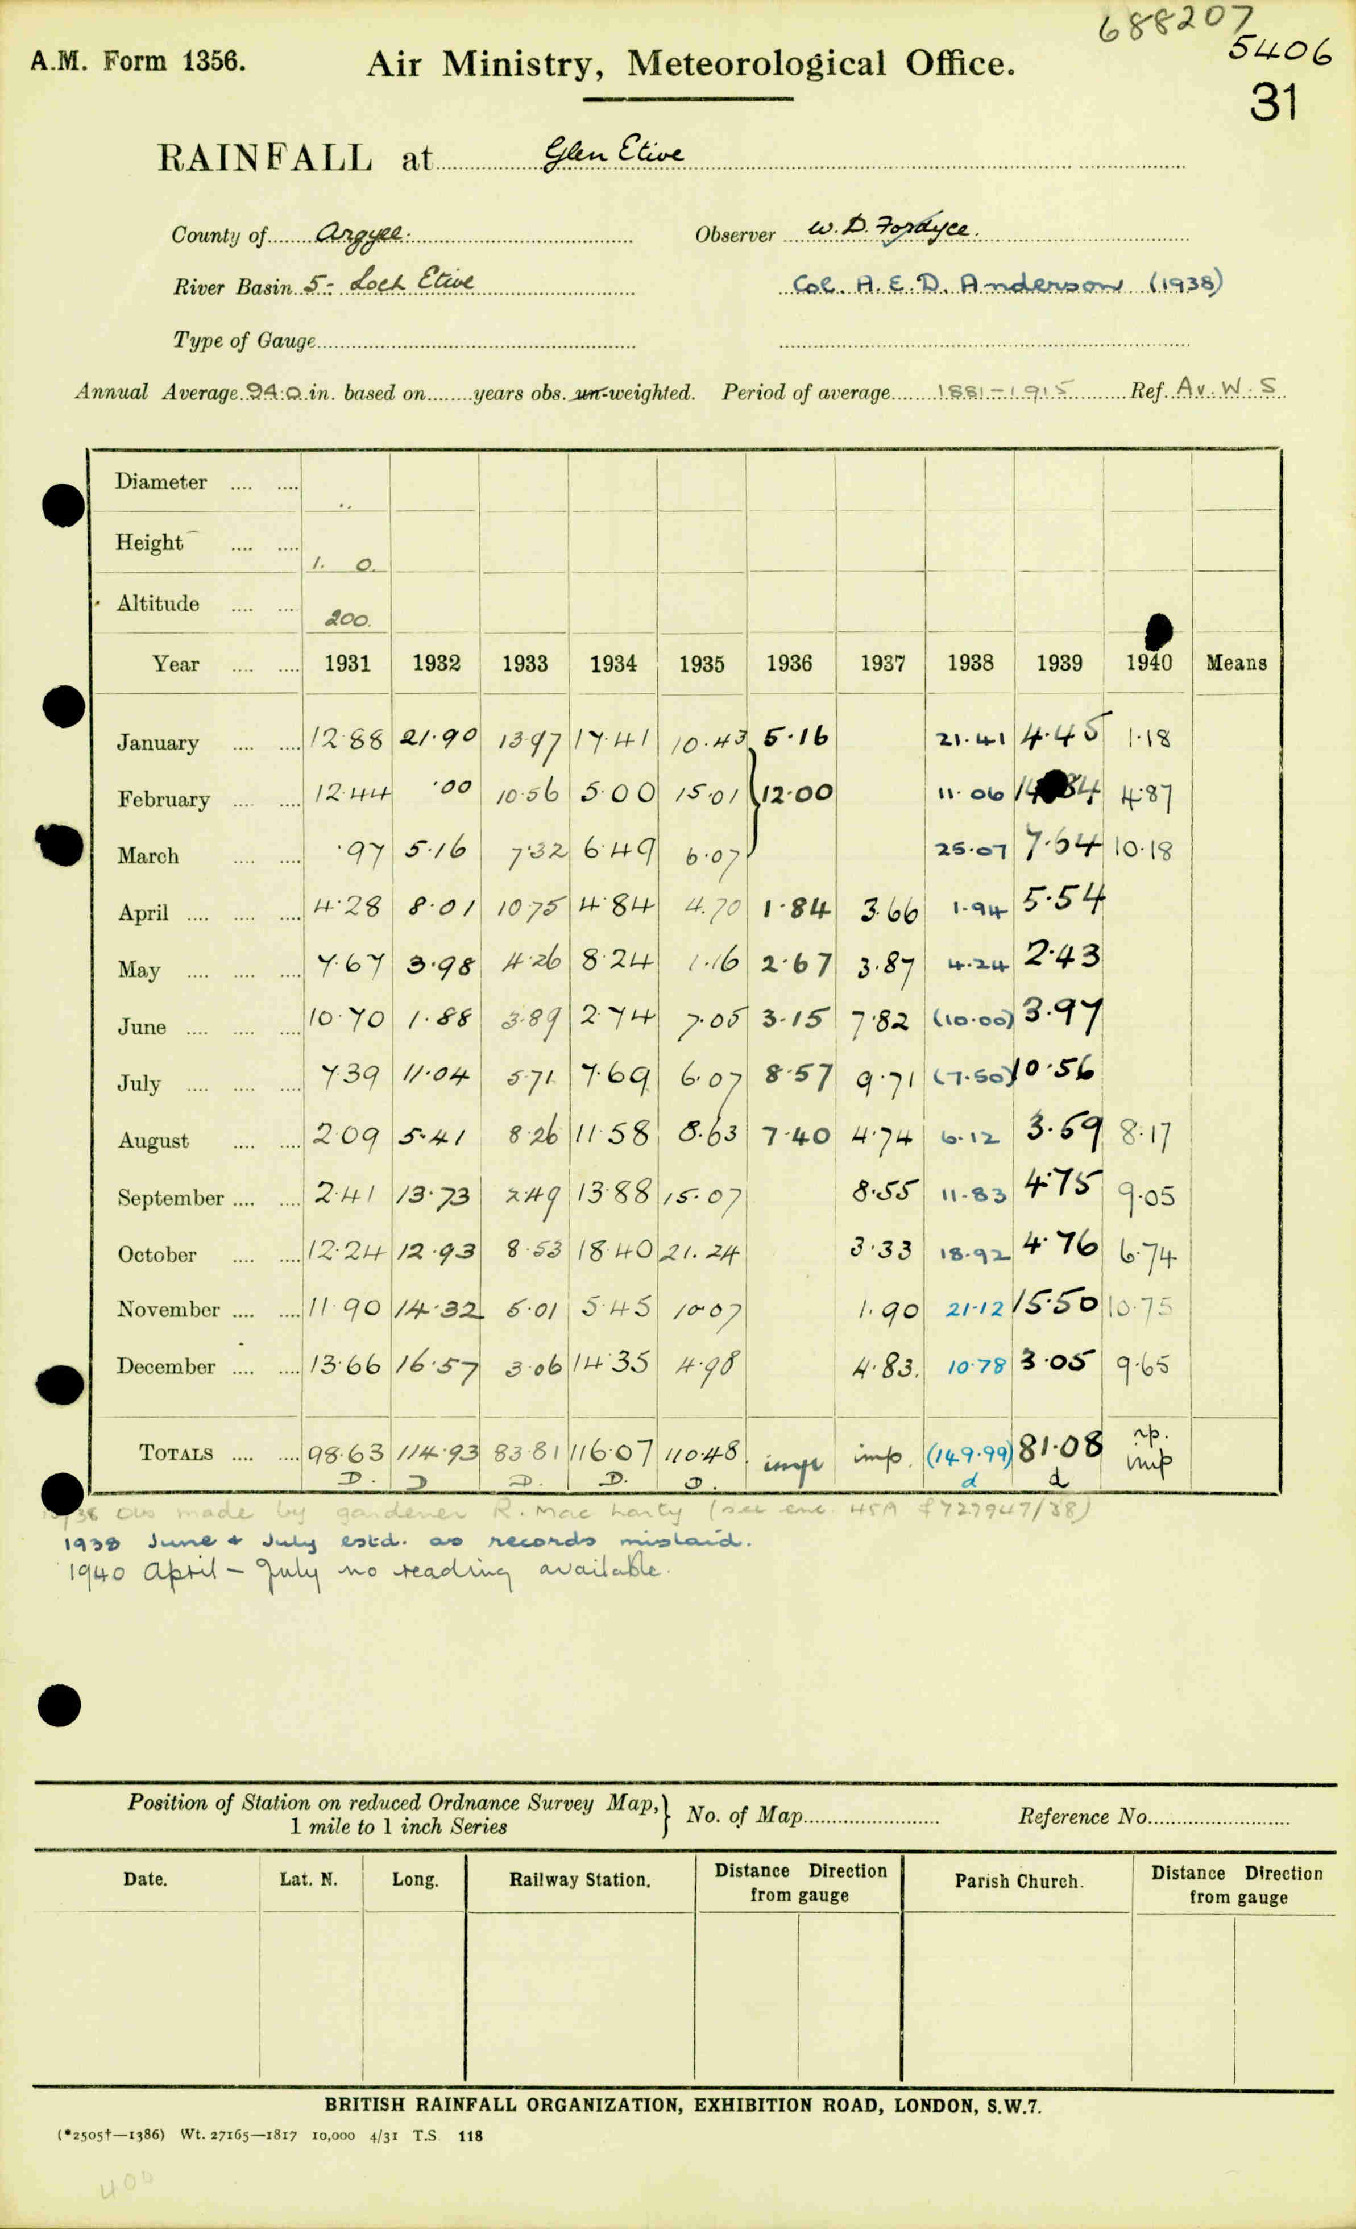 688207
5406
31
A.M. Form 1356.
Air Ministry, Meteorological Office.
RAINFALL at Glen Etive
County of Argyll. Observer W. D. Fordyce.
River Basin 5 - Loch Etive Col. A. E. D. Anderson (1938)
Type of Gauge
Annual Average 94.0 in. based on years obs. un-weighted. Period of average 1881-1915 Ref. Av. W. S.
Diameter
Height 1. 0.
Altitude 200.
Year 1931 1932 1933 1934 1935 1936 1937 1938 1939 1940 Means
January 12.88 21.90 13.97 17.41 10.43 5.16 21.41 4.45 1.18
February 12.44 .00 10.56 5.00 15.01 12.00 11.06 14.84 4.87
March .97 5.16 7.32 6.49 6.07 25.07 7.64 10.18
April 4.28 8.01 10.75 4.84 4.70 1.84 3.66 1.94 5.54
May 7.67 3.98 4.26 8.24 1.16 2.67 3.87 4.24 2.43
June 10.70 1.88 3.89 2.74 7.05 3.15 7.82 (10.00) 3.97
July 7.39 11.04 5.71 7.69 6.07 8.57 9.71 (7.50) 10.56
August 2.09 5.41 8.26 11.58 8.63 7.40 4.74 6.12 3.59 8.17
September 2.41 13.73 2.49 13.88 15.07 8.55 11.83 4.75 9.05
October 12.24 12.93 8.53 18.40 21.24 3.33 18.92 4.76 6.74
November 11.90 14.32 5.01 5.45 10.07 1.90 21.12 15.50 10.75
December 13.66 16.57 3.06 14.35 4.98 4.83. 10.78 3.05 9.65
TOTALS 98.63 114.93 83.81 116.07 110.48. impt imp. (149.99) 81.08 imp
D. D D. D. D. d d
1938 Obs made by gardener R. Mac (see enc. 727947/38)
1938 June & July estd. as records mislaid.
1940 April - July no reading available.
Position of Station on reduced Ordnance Survey Map, 1 mile to 1 inch Series } No. of Map Reference No.
Date. Lat. N. Long. Railway Station. Distance Direction from gauge Parish Church. Distance Direction from gauge
BRITISH RAINFALL ORGANIZATION, EXHIBITION ROAD, LONDON, S.W.7.
(*2505†—1386) Wt. 27165—1817 10,000 4/31 T.S 118
400